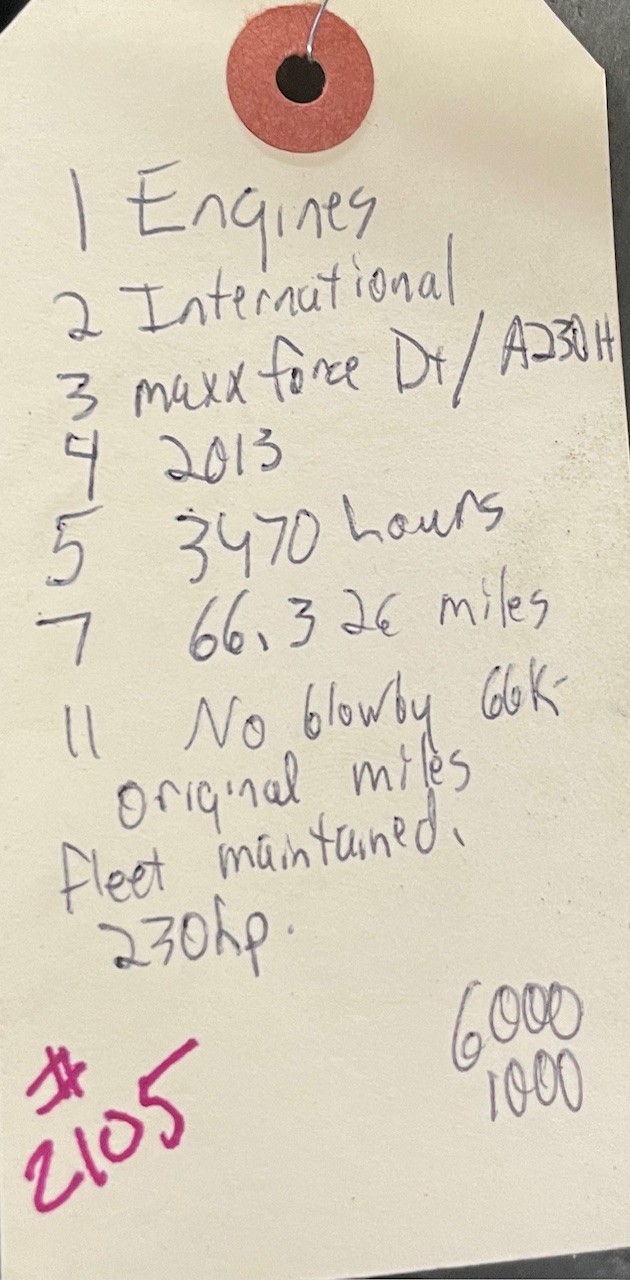 1 Engines
2 International
3 maxxforce Dt/A230H
4 2013
5 3470 hours
7 66,326 miles
11 No blowby 66K
original miles
fleet maintained.
230hp.
6000
1000
#
2105